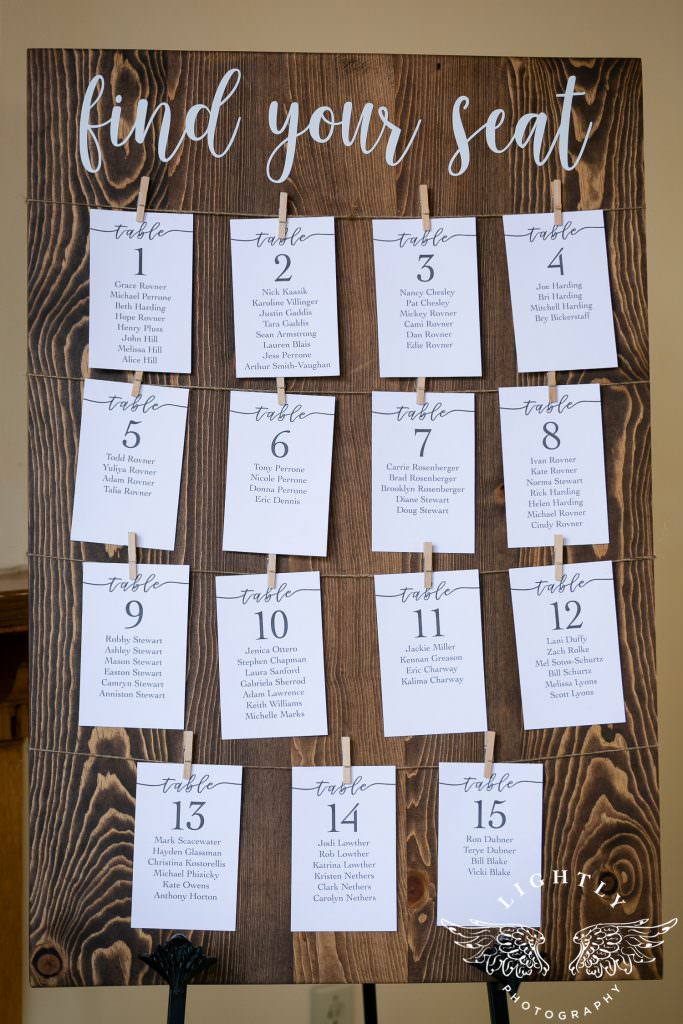 find your seat
table
1
Grace Rovner
Michael Perrone
Beth Harding
Hope Rovner
Henry Pluss
John Hill
Melissa Hill
Alice Hill
table
2
Nick Kaasik
Karoline Villinger
Justin Gaddis
Tara Gaddis
Sean Armstrong
Lauren Blais
Jess Perrone
Arthur Smith-Vaughan
table
3
Nancy Chesley
Pat Chesley
Mickey Rovner
Cami Rovner
Dan Rovner
Edie Rovner
table
4
Joe Harding
Bri Harding
Mitchell Harding
Bry Bickerstaff
table
5
Todd Rovner
Yuliya Rovner
Adam Rovner
Talia Rovner
table
6
Tony Perrone
Nicole Perrone
Donna Perrone
Eric Dennis
table
7
Carrie Rosenberger
Brad Rosenberger
Brooklyn Rosenberger
Diane Stewart
Doug Stewart
table
8
Ivan Rovner
Kate Rovner
Norma Stewart
Rick Harding
Helen Harding
Michael Rovner
Cindy Rovner
table
9
Robby Stewart
Ashley Stewart
Mason Stewart
Easton Stewart
Camryn Stewart
Anniston Stewart
table
10
Jenica Ottero
Stephen Chapman
Laura Sanford
Gabriela Sherrod
Adam Lawrence
Keith Williams
Michelle Marks
table
11
Jackie Miller
Kennan Greason
Eric Charway
Kalima Charway
table
12
Lani Duffy
Zach Rolke
Mel Sotos-Schurtz
Bill Schurtz
Melissa Lyons
Scott Lyons
table
13
Mark Scacewater
Hayden Glassman
Christina Kostorellis
Michael Phizicky
Kate Owens
Anthony Horton
table
14
Jodi Lowther
Rob Lowther
Katrina Lowther
Kristen Nethers
Clark Nethers
Carolyn Nethers
table
15
Ron Dubner
Terye Dubner
Bill Blake
Vicki Blake
LIGHTLY
PHOTOGRAPHY